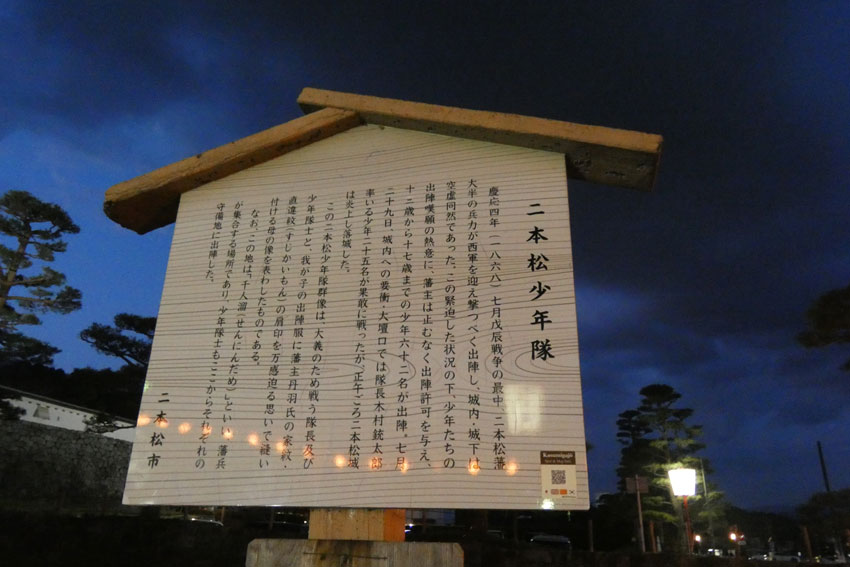 二本松少年隊
慶応四年(一八六八)七月戊辰戦争の最中、二本松藩
大半の兵力が西軍を迎え撃つべく出陣し、城内・城下は
空虚同然であった。この緊迫した状況の下、少年たちの
出陣嘆願の熱意に、藩主は止むなく出陣許可を与え、
十三歳から十七歳までの少年六十二名が出陣。七月
二十九日、城内への要衝・大壇口では隊長木村銃太郎
率いる少年二十五名が果敢に戦ったが、正午ごろ二本松城
は炎上し落城した。
この二本松少年隊群像は、大義のため戦う隊長及び
少年隊士と、我が子の出陣服に藩主丹羽氏の家紋・
直違紋(すじかいもん)の肩印を万感迫る思いで縫い
付ける母の像を表わしたものである。
なお、この地は、「千人溜」(せんにんだめ)といい、藩兵
が集合する場所であり、少年隊士もここからそれぞれの
守備地に出陣した。
二本松市